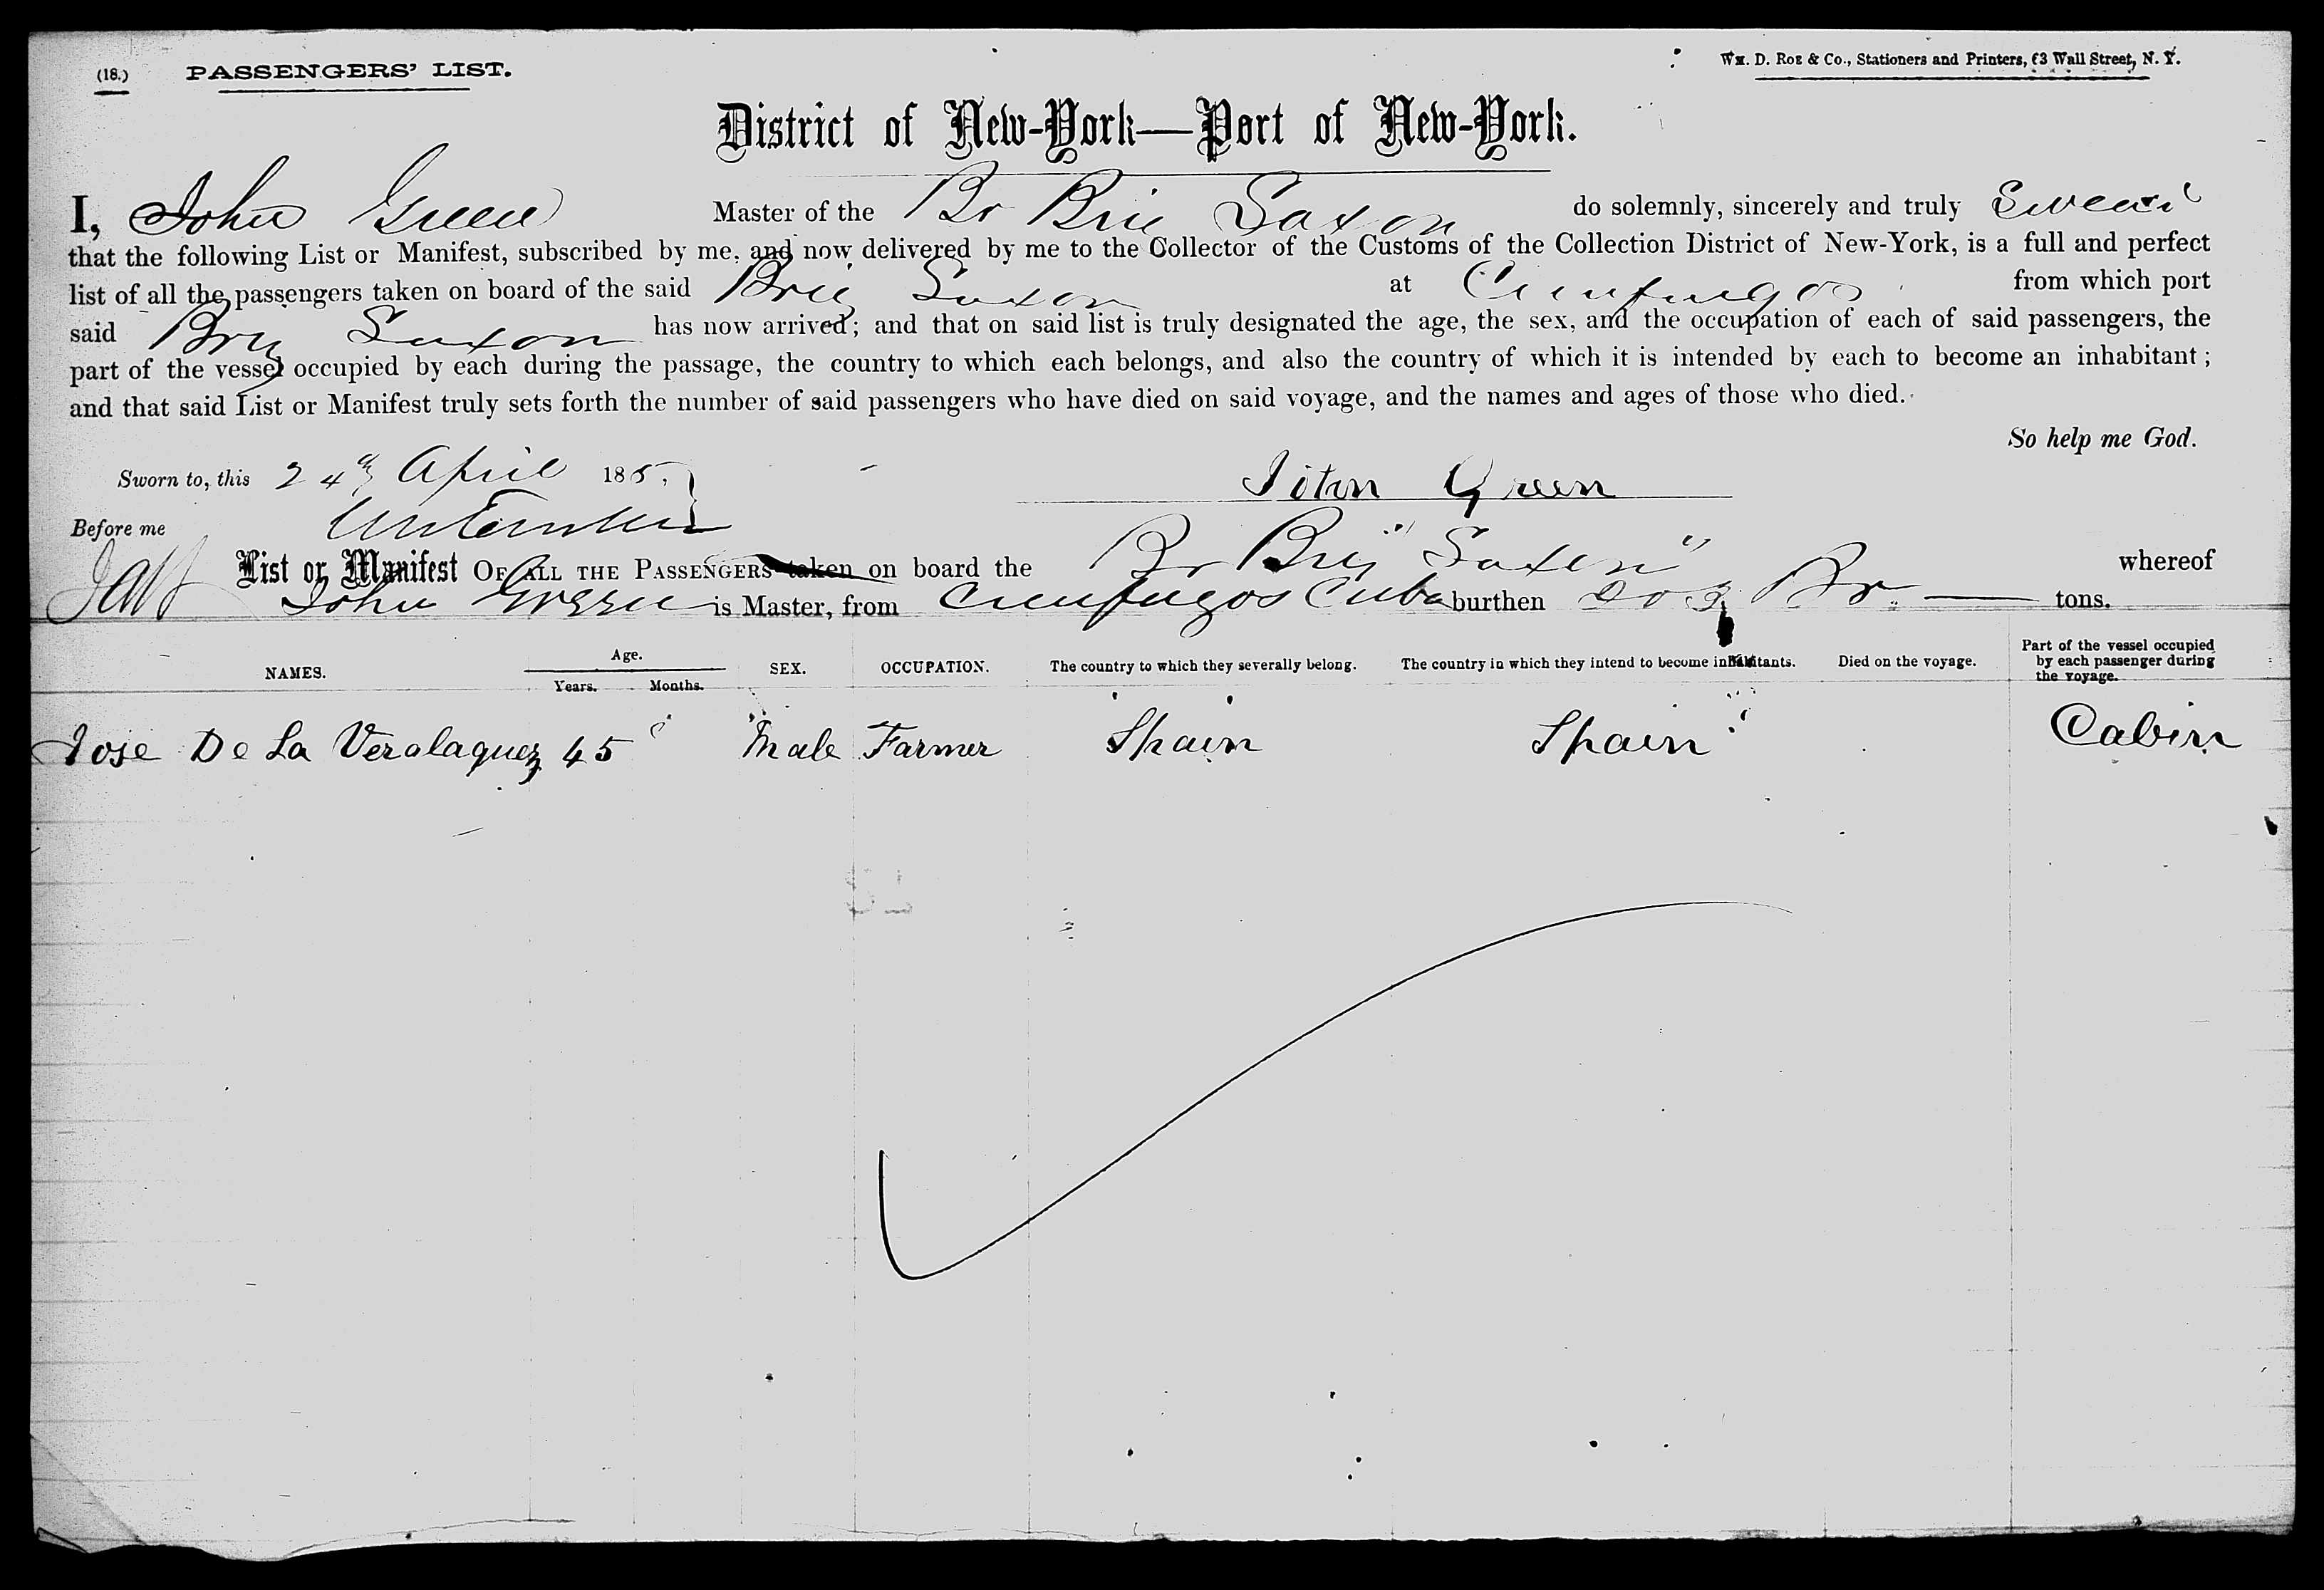 (18.) PASSENGERS' LIST.
Wm. D. Roe & Co., Stationers and Printers, 63 Wall Street, N. Y.
District of New-York—Port of New-York.
I, John Green Master of the Br Brig Saxon do solemnly, sincerely and truly Swear
that the following List or Manifest, subscribed by me, and now delivered by me to the Collector of the Customs of the Collection District of New-York, is a full and perfect
list of all the passengers taken on board of the said Brig Saxon at Cienfuegos from which port
said Brig Saxon has now arrived; and that on said list is truly designated the age, the sex, and the occupation of each of said passengers, the
part of the vessel occupied by each during the passage, the country to which each belongs, and also the country of which it is intended by each to become an inhabitant;
and that said List or Manifest truly sets forth the number of said passengers who have died on said voyage, and the names and ages of those who died.
So help me God.
Sworn to, this 24th April 185
John Green
Before me
List or Manifest OF ALL THE PASSENGERS taken on board the Br Brig "Saxon" whereof
John Green is Master, from Cienfuegos Cuba burthen 203 Br — tons.
NAMES. Age. Years. Months. SEX. OCCUPATION. The country to which they severally belong. The country in which they intend to become inhabitants. Died on the voyage. Part of the vessel occupied by each passenger during the voyage.
Jose De La Veralaquez 45 Male Farmer Spain Spain Cabin